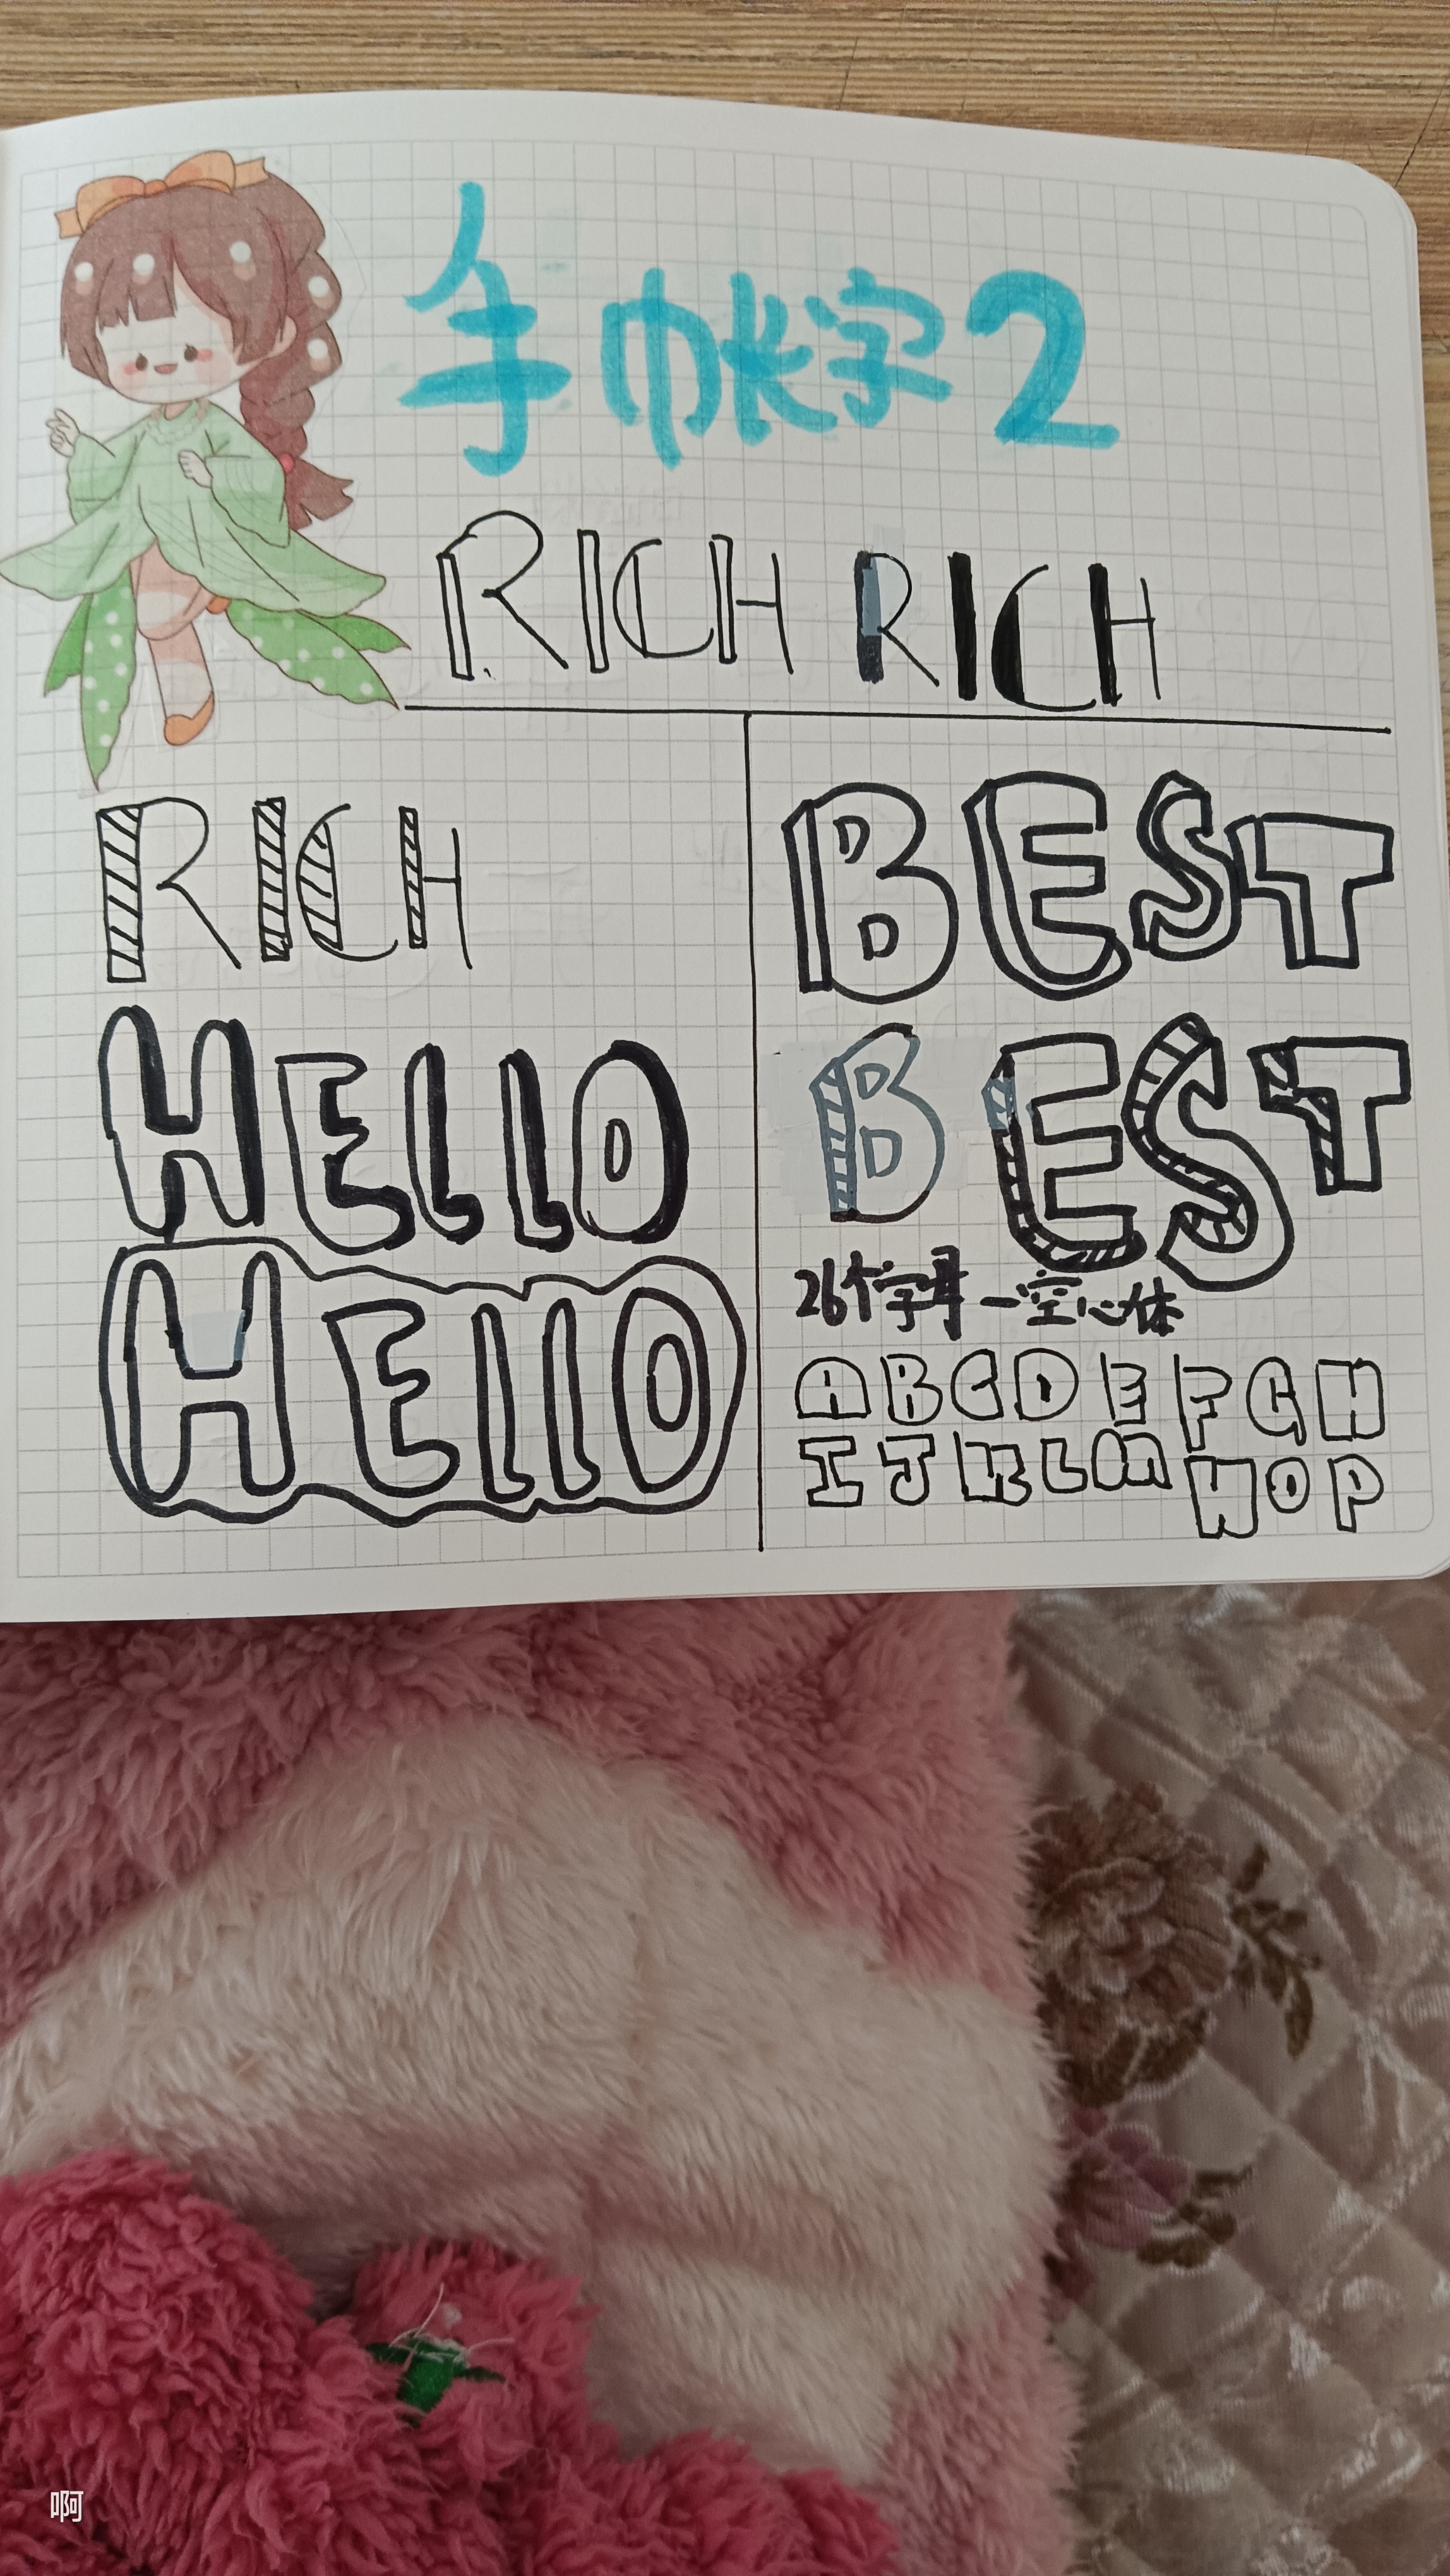 手帐字2
RICH RICH
RICH
HELLO
HELLO
BEST
BEST
26个字母-空心体
ABCDEFGH
IJKLMNOP
啊